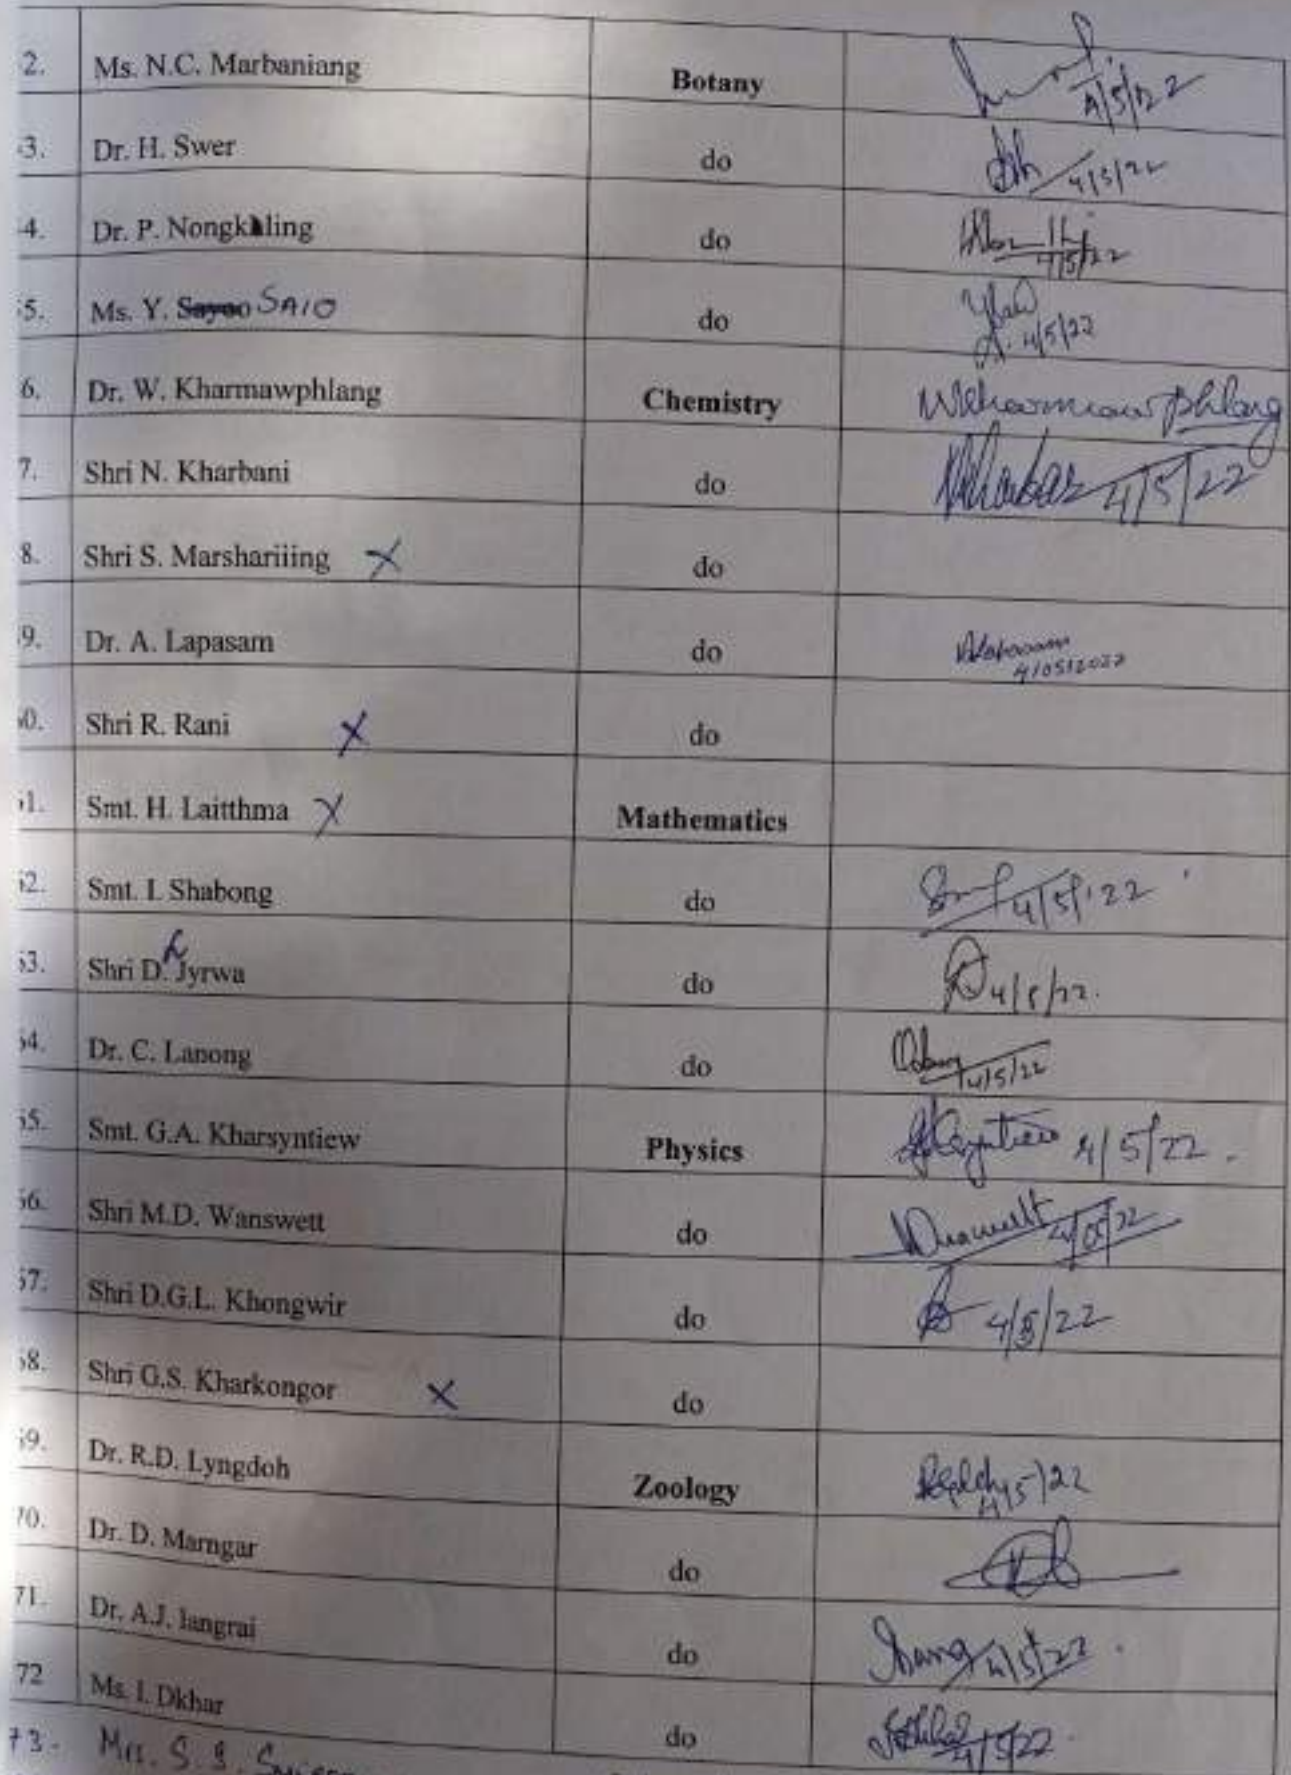 2. Ms. N.C. Marbaniang Botany 4/5/22
3. Dr. H. Swer do 4/5/22
4. Dr. P. Nongkhling do 4/5/22
5. Ms. Y. Sayoo SAIO do 4/5/22
6. Dr. W. Kharmawphlang Chemistry WKharmawphlang
7. Shri N. Kharbani do 4/5/22
8. Shri S. Marshariiing X do
9. Dr. A. Lapasam do 4/05/2022
60. Shri R. Rani X do
61. Smt. H. Laitthma X Mathematics
62. Smt. I. Shabong do 4/5/'22
63. Shri D. Jyrwa do 4/5/22.
64. Dr. C. Lanong do 4/5/22
65. Smt. G.A. Kharsyntiew Physics 4/5/22.
66. Shri M.D. Wanswett do 4/05/22
67. Shri D.G.L. Khongwir do 4/5/22
68. Shri G.S. Kharkongor X do
69. Dr. R.D. Lyngdoh Zoology 4/5/22
70. Dr. D. Marngar do
71. Dr. A.J. Iangrai do 4/5/22.
72 Ms. I. Dkhar do 4/5/22
73. Mrs. S.